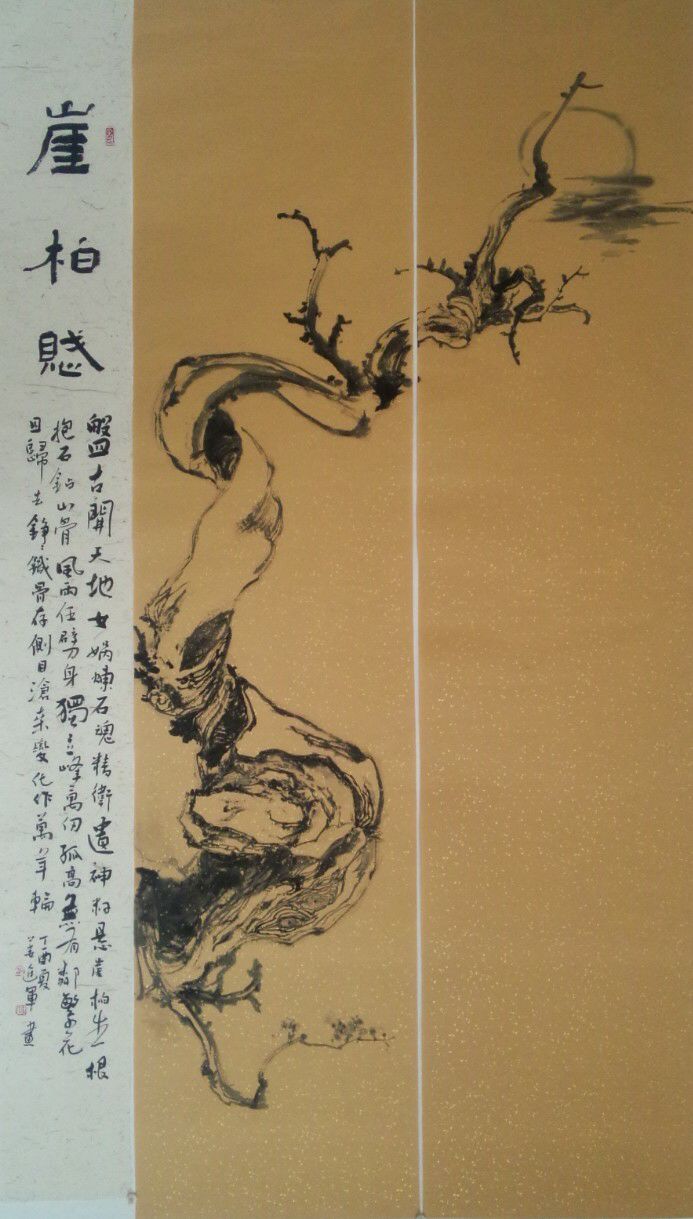 崖柏賦
盤古開天地女媧煉石魂精衛遺神籽懸崖柏生一根
抱石鉆山骨風雨任劈身獨立峰萬仞孤高無有鄰繁花
回歸去錚錚鐵骨存側目滄桑變化作萬年輪
丁酉夏
姜進軍畫